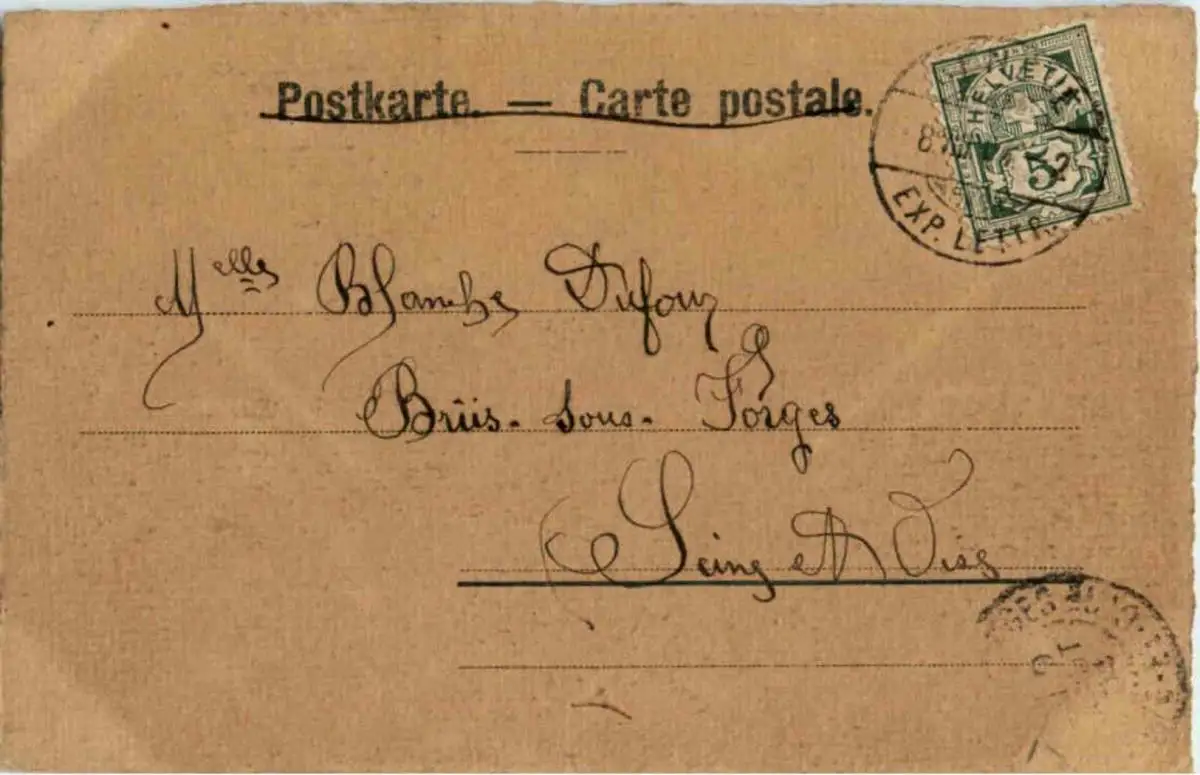 Postkarte. — Carte postale.
HELVETIA
5
EXP. LETTR.
Melles Blanche Dufour
Brïis. sous. Forges
Seine et Oise